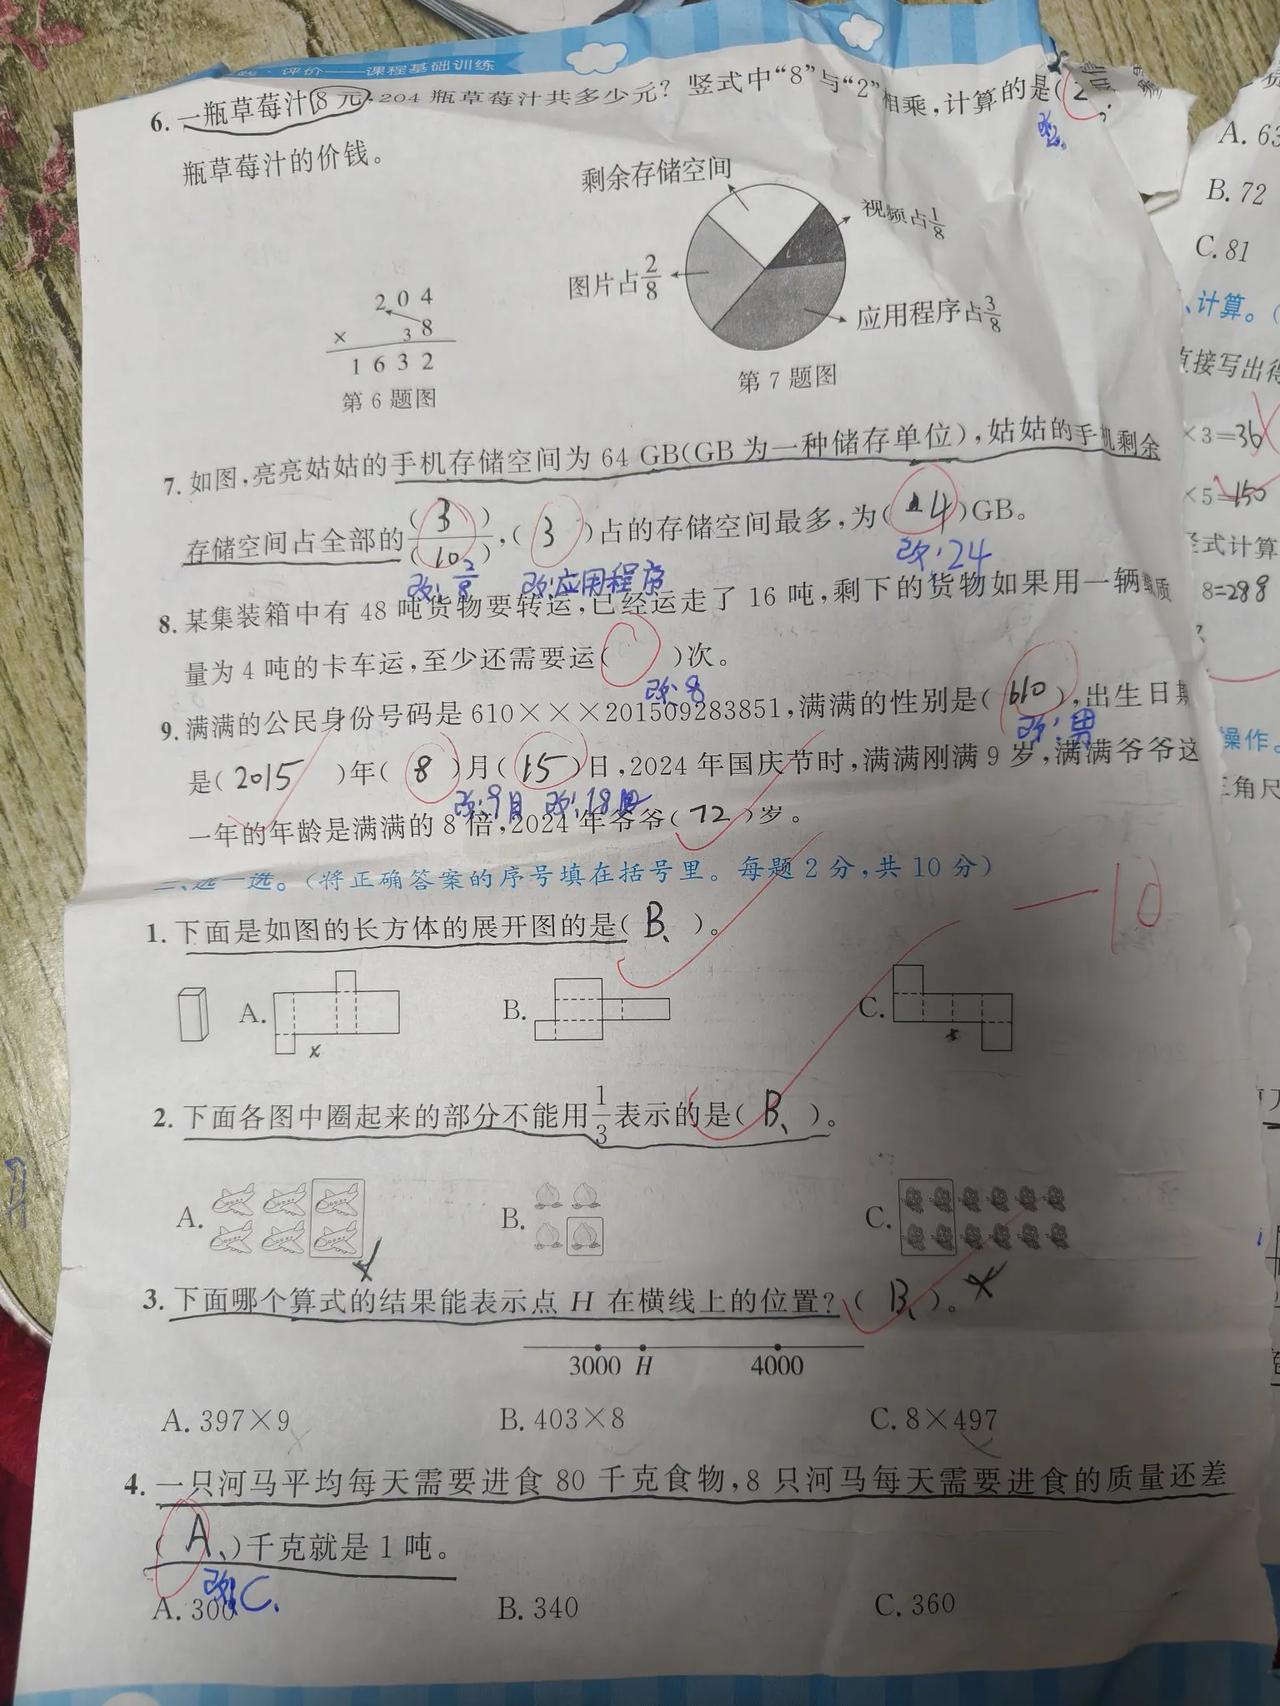 评价——课程基础训练
6. 一瓶草莓汁8元,204 瓶草莓汁共多少元?竖式中“8”与“2”相乘,计算的是(2
改:
瓶草莓汁的价钱。
剩余存储空间
视频占1/8
图片占2/8
应用程序占3/8
2 0 4
× 3 8
1 6 3 2
第 6 题图
第 7 题图
7. 如图,亮亮姑姑的手机存储空间为 64 GB(GB 为一种储存单位),姑姑的手机剩余
存储空间占全部的(3)/(10),(3)占的存储空间最多,为(14)GB。
改:2/8 改:应用程序 改:24
8. 某集装箱中有 48 吨货物要转运,已经运走了 16 吨,剩下的货物如果用一辆载质
量为 4 吨的卡车运,至少还需要运( )次。
改:8
9. 满满的公民身份号码是 610×××201509283851,满满的性别是(610),出生日期
改:男
是(2015)年(8)月(15)日,2024 年国庆节时,满满刚满 9 岁,满满爷爷这
改:9月 改:18日
一年的年龄是满满的 8 倍,2024 年爷爷(72)岁。
二、选一选。(将正确答案的序号填在括号里。每题 2 分,共 10 分)
—10
1. 下面是如图的长方体的展开图的是(B、)。
A. B. C.
2. 下面各图中圈起来的部分不能用1/3表示的是(B、)。
A. B. C.
3. 下面哪个算式的结果能表示点 H 在横线上的位置?(B、)。
3000 H 4000
A. 397×9 B. 403×8 C. 8×497
4. 一只河马平均每天需要进食 80 千克食物,8 只河马每天需要进食的质量还差
(A、)千克就是 1 吨。
改:C.
A. 300 B. 340 C. 360
A. 63
B. 72
C. 81
、计算。(
直接写出得
×3=36
×5=150
竖式计算
8=288
操作。
三角尺